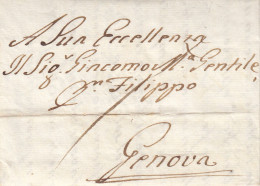 A Sua Eccellenza
Il Sig.r Giacomo M.a Gentile
q.m Filippo
Genova